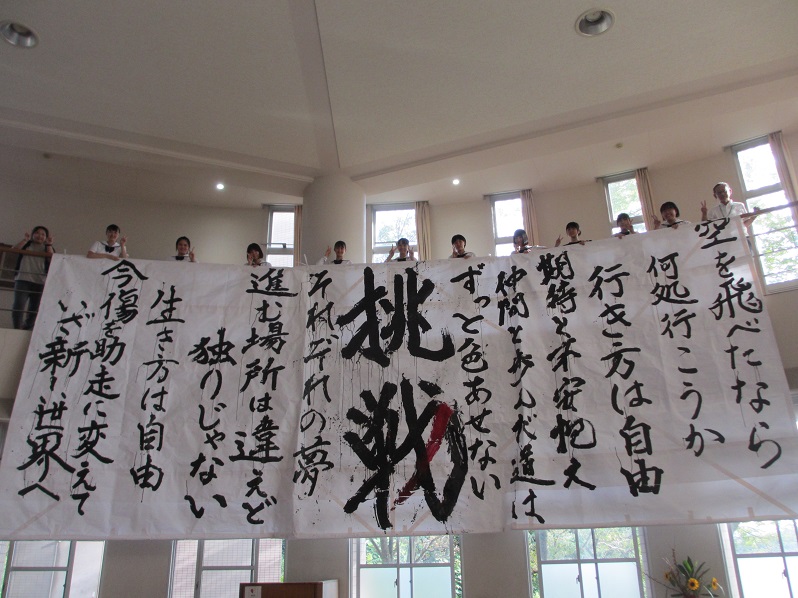 空を飛べたなら
何処行こうか
行き方は自由
期待と不安抱え
仲間と歩んだ道は
ずっと色あせない
挑戦
それぞれの夢
進む場所は違えど
独りじゃない
生き方は自由
今傷を助走に変えて
いざ新しい世界へ